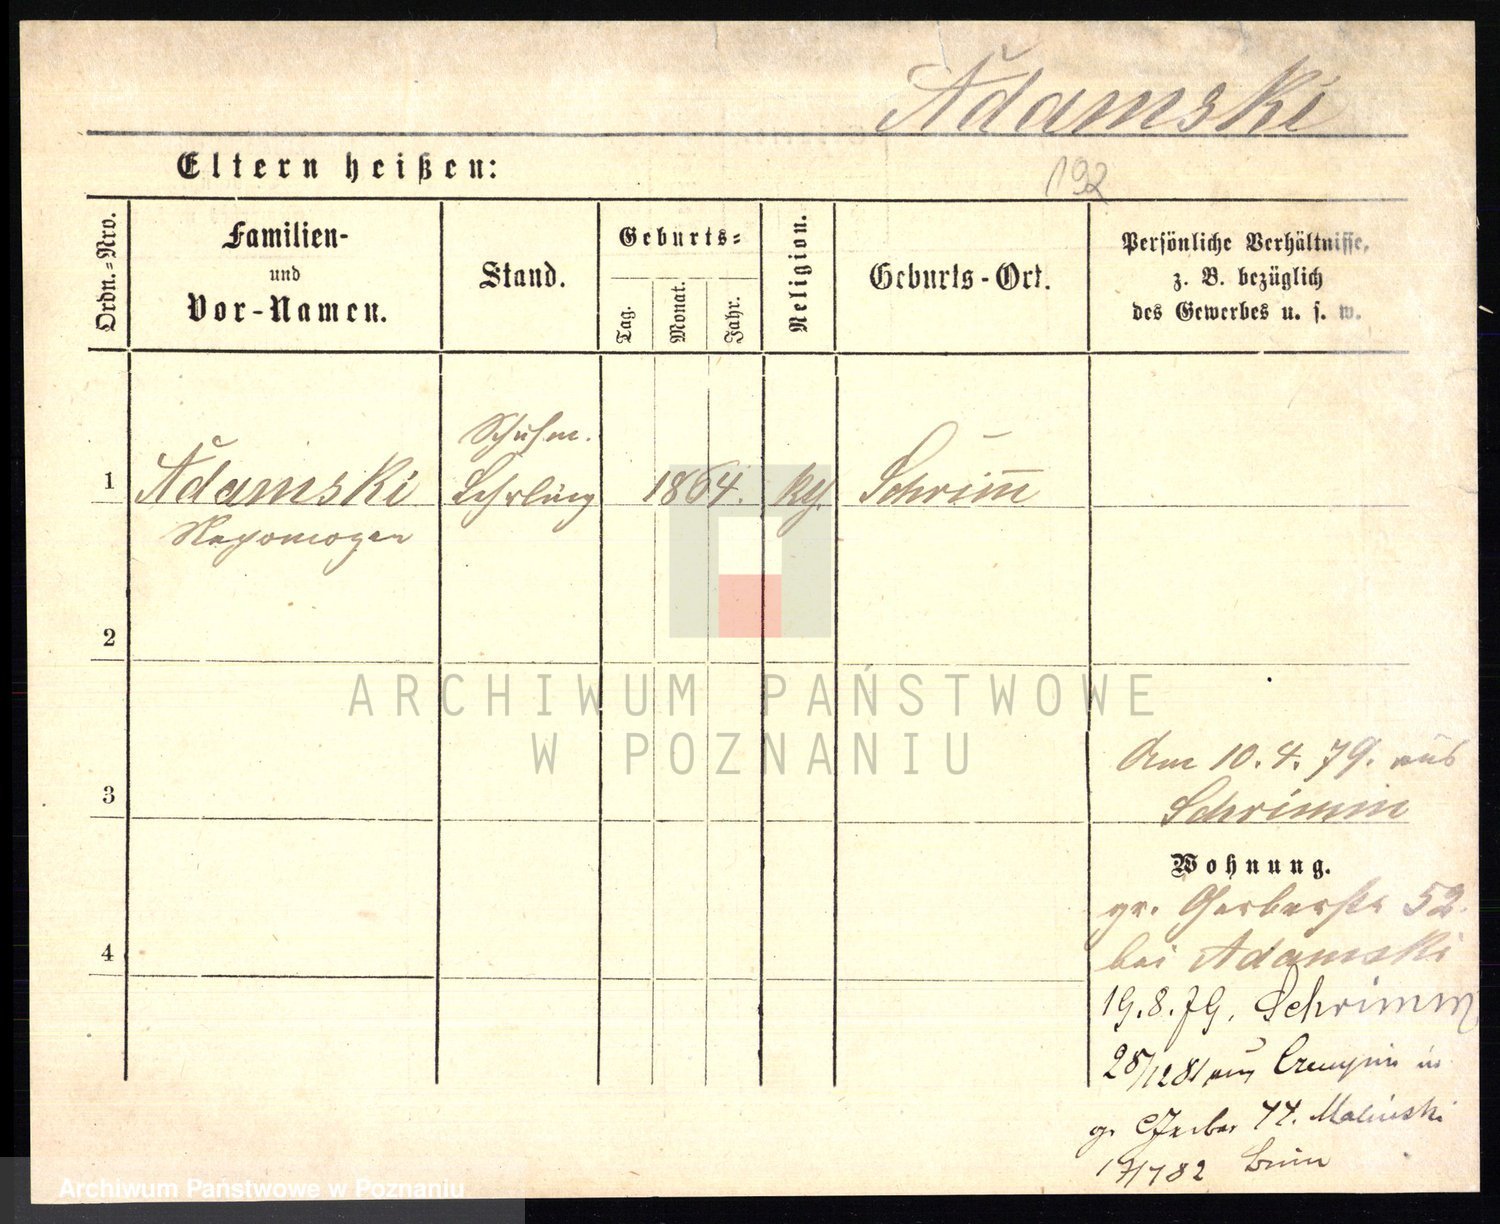 Adamski
Eltern heißen:
192
Ordn.=Nro.
Familien-
und
Vor-Namen.
Stand.
Geburts=
Tag.
Monat.
Jahr.
Religion.
Geburts-Ort.
Persönliche Verhältnisse,
z. B. bezüglich
des Gewerbes u. s. w.
1
Adamski
Schuhm.
Lehrling
1864.
Schrim̅
2
ARCHIWUM PAŃSTWOWE
W POZNANIU
3
Am 10. 4. 79. aus
Schrimm
Wohnung.
gr. Gerberstr 52.
4
bei Adamski
19. 8. 79. Schrimm
28/12 81 aus
gr Gerber 44. Malinski
17/1 82
Archiwum Państwowe w Poznaniu